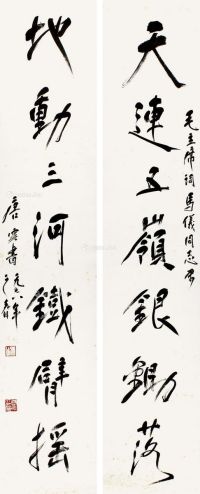 天連五嶺銀鋤落
毛主席詞馬儀同志屬
地動三河鐵臂搖
唐雲書
一九七八年